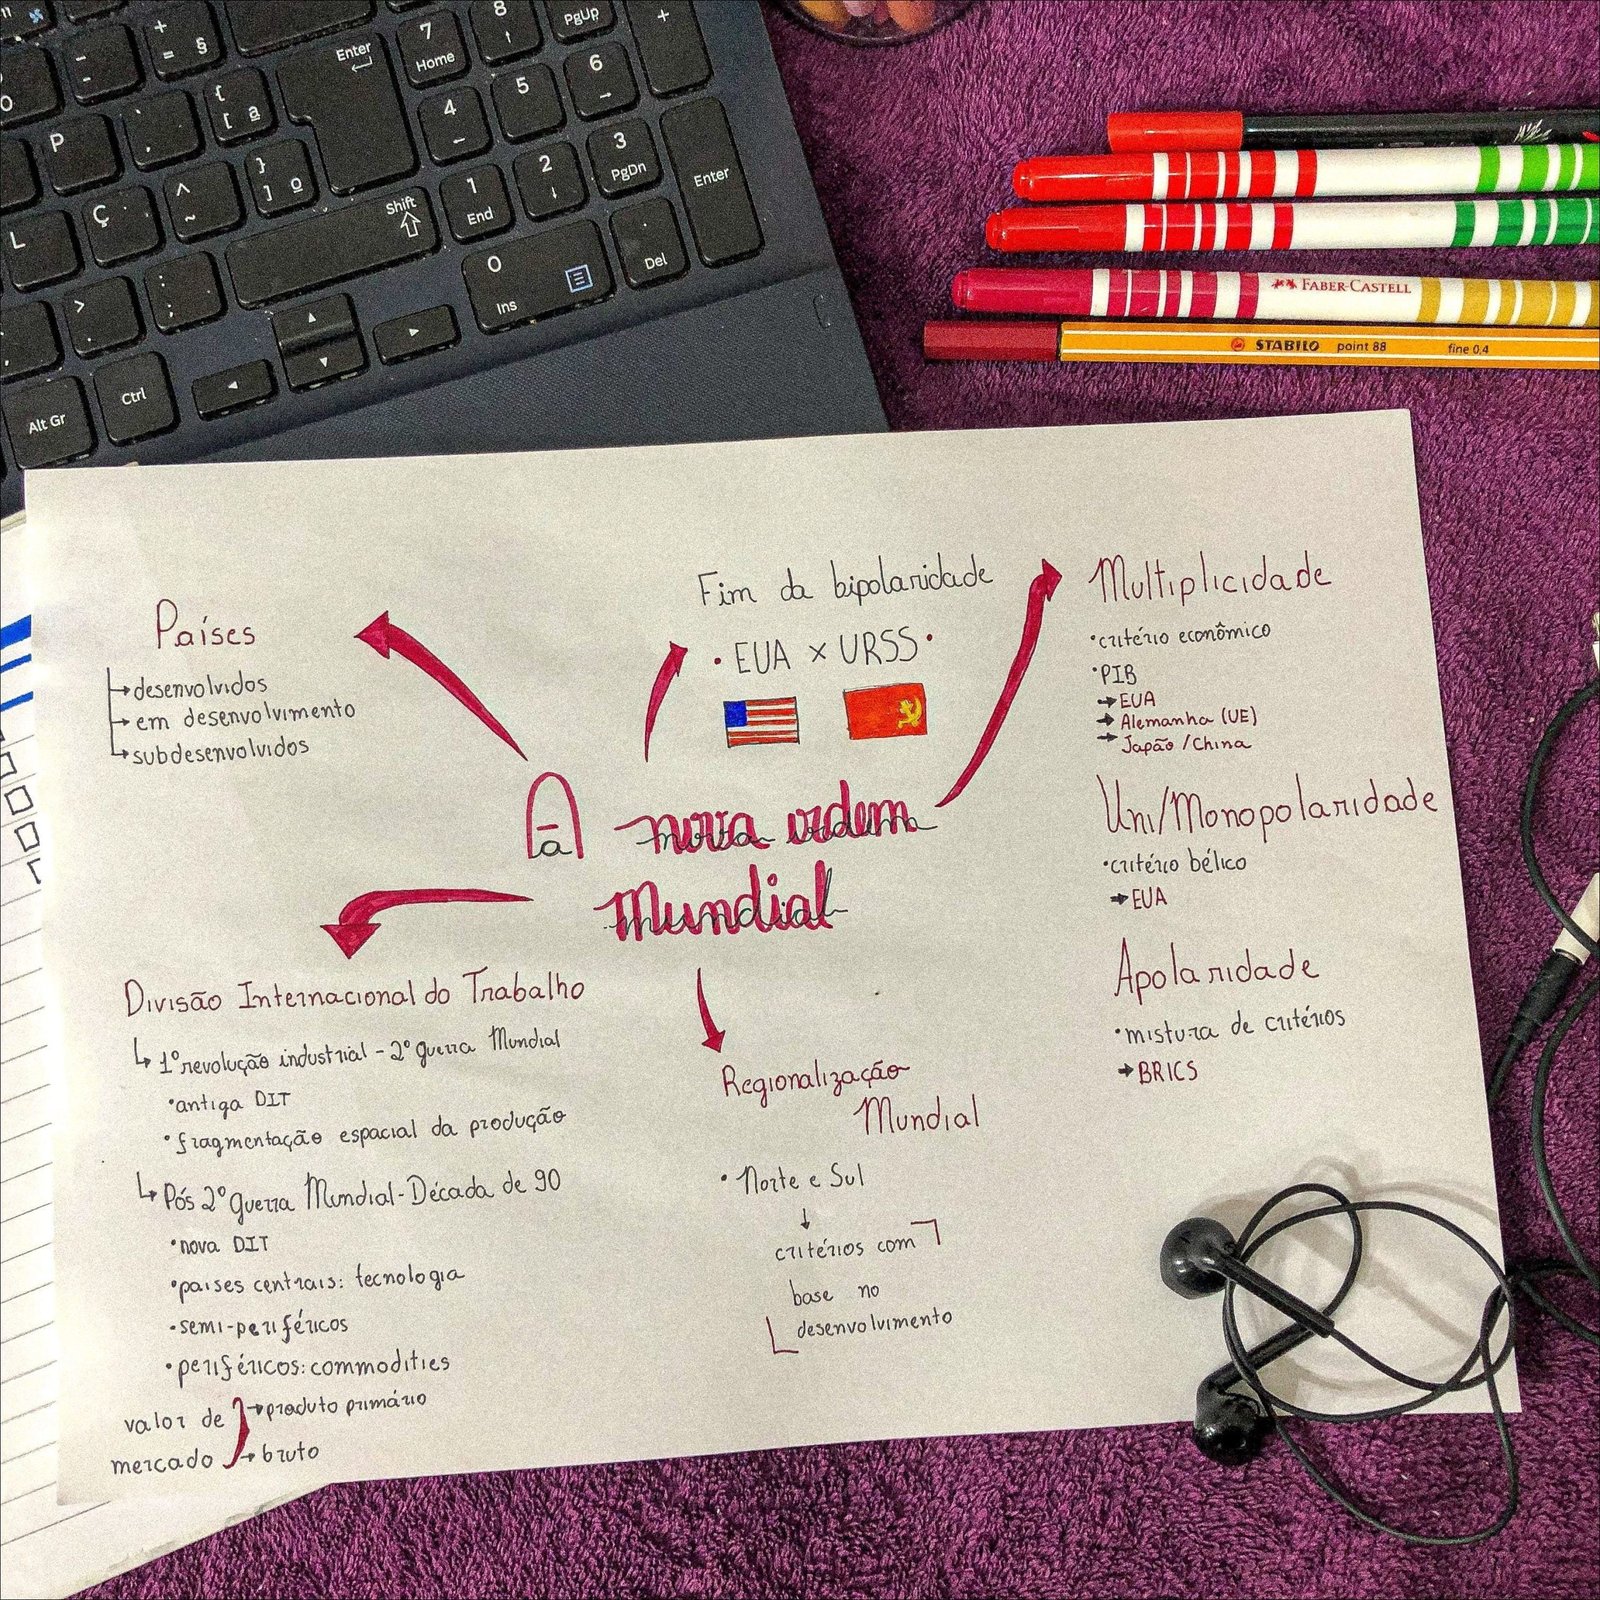 Enter
7
Home
8
PgUp
+
+
= §
-
-
{
[ ª
4
5
6
P
`
´
}
] º
1
End
2
3
PgDn
Enter
Ç
^
~
Shift
L
0
Ins
.
Del
>
.
:
;
Alt Gr
Ctrl
FABER-CASTELL
STABILO point 88 fine 0,4
Países
desenvolvidos
em desenvolvimento
subdesenvolvidos
Fim da bipolaridade
• EUA x URSS •
Multiplicidade
• critério econômico
• PIB
→ EUA
→ Alemanha (UE)
→ Japão / China
A nova ordem
Mundial
Uni/Monopolaridade
• critério bélico
→ EUA
Apolaridade
• mistura de critérios
→ BRICS
Divisão Internacional do Trabalho
↳ 1º revolução industrial - 2º guerra Mundial
• antiga DIT
• fragmentação espacial da produção
↳ Pós 2º guerra Mundial - Década de 90
• nova DIT
• países centrais: tecnologia
• semi-periféricos
• periféricos: commodities
valor de } → produto primário
mercado → bruto
Regionalização
Mundial
• Norte e Sul
↓
critérios com
base no
desenvolvimento